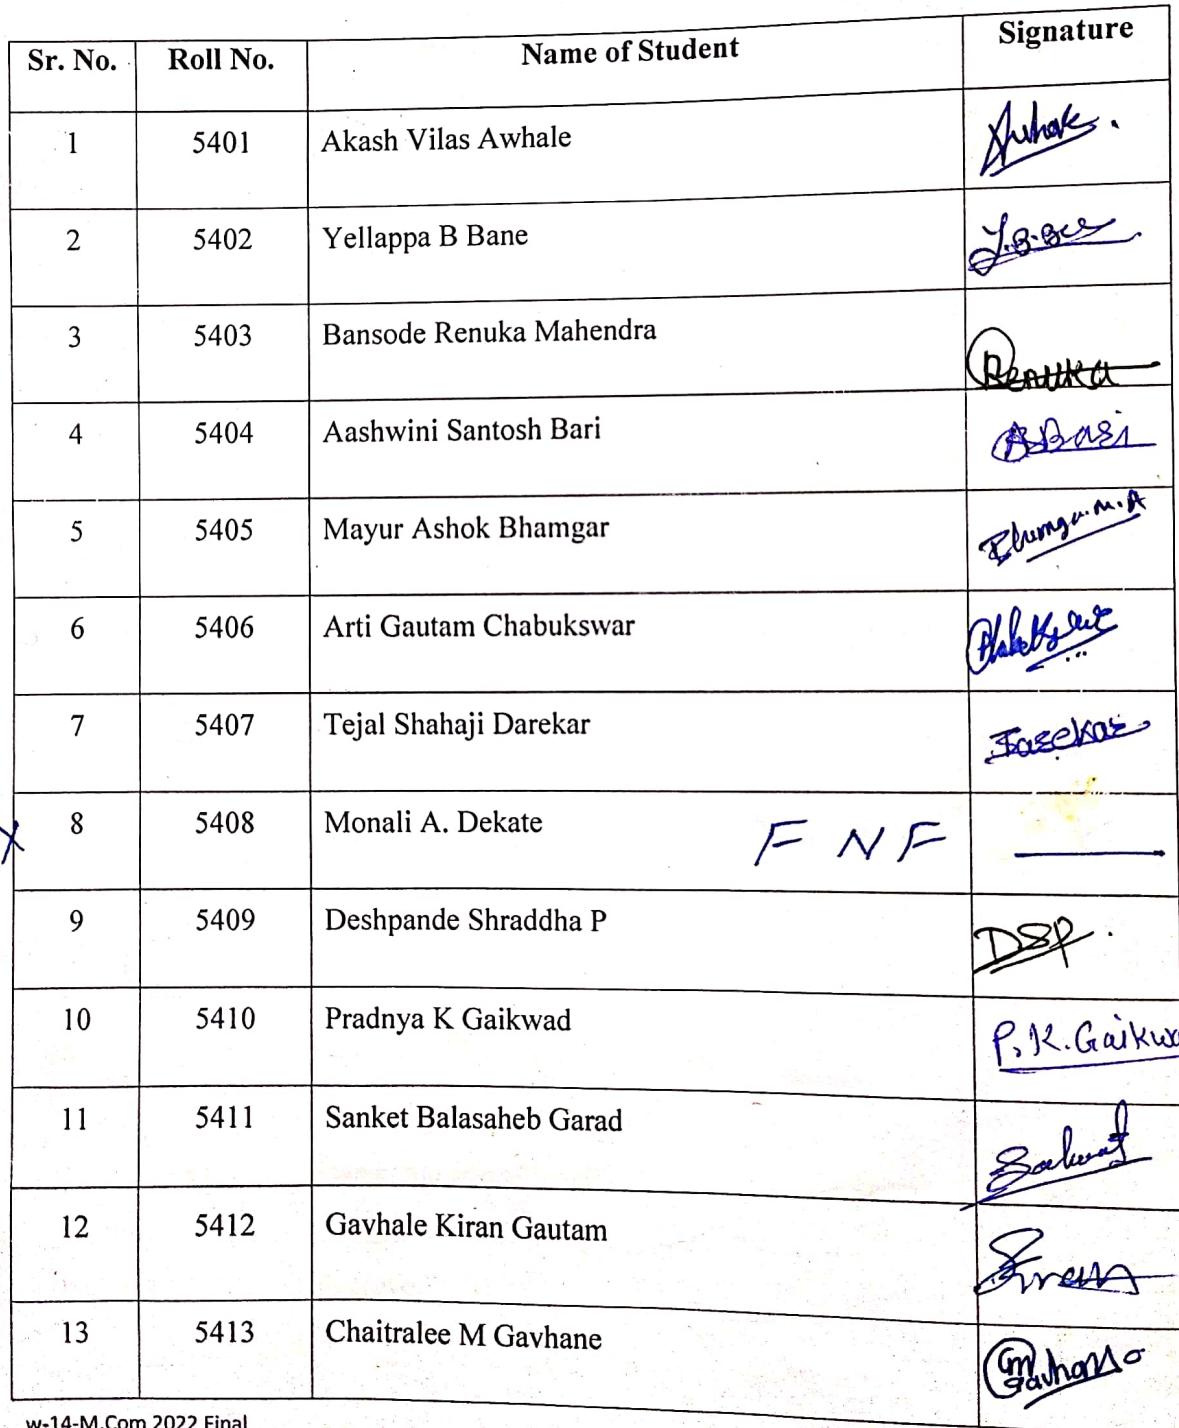 Sr. No. Roll No. Name of Student Signature
1 5401 Akash Vilas Awhale
2 5402 Yellappa B Bane
3 5403 Bansode Renuka Mahendra Renuka
4 5404 Aashwini Santosh Bari
5 5405 Mayur Ashok Bhamgar
6 5406 Arti Gautam Chabukswar
7 5407 Tejal Shahaji Darekar
X 8 5408 Monali A. Dekate F N F
9 5409 Deshpande Shraddha P DSP
10 5410 Pradnya K Gaikwad P. K. Gaikwa
11 5411 Sanket Balasaheb Garad
12 5412 Gavhale Kiran Gautam
13 5413 Chaitralee M Gavhane
w-14-M.Com 2022 Final